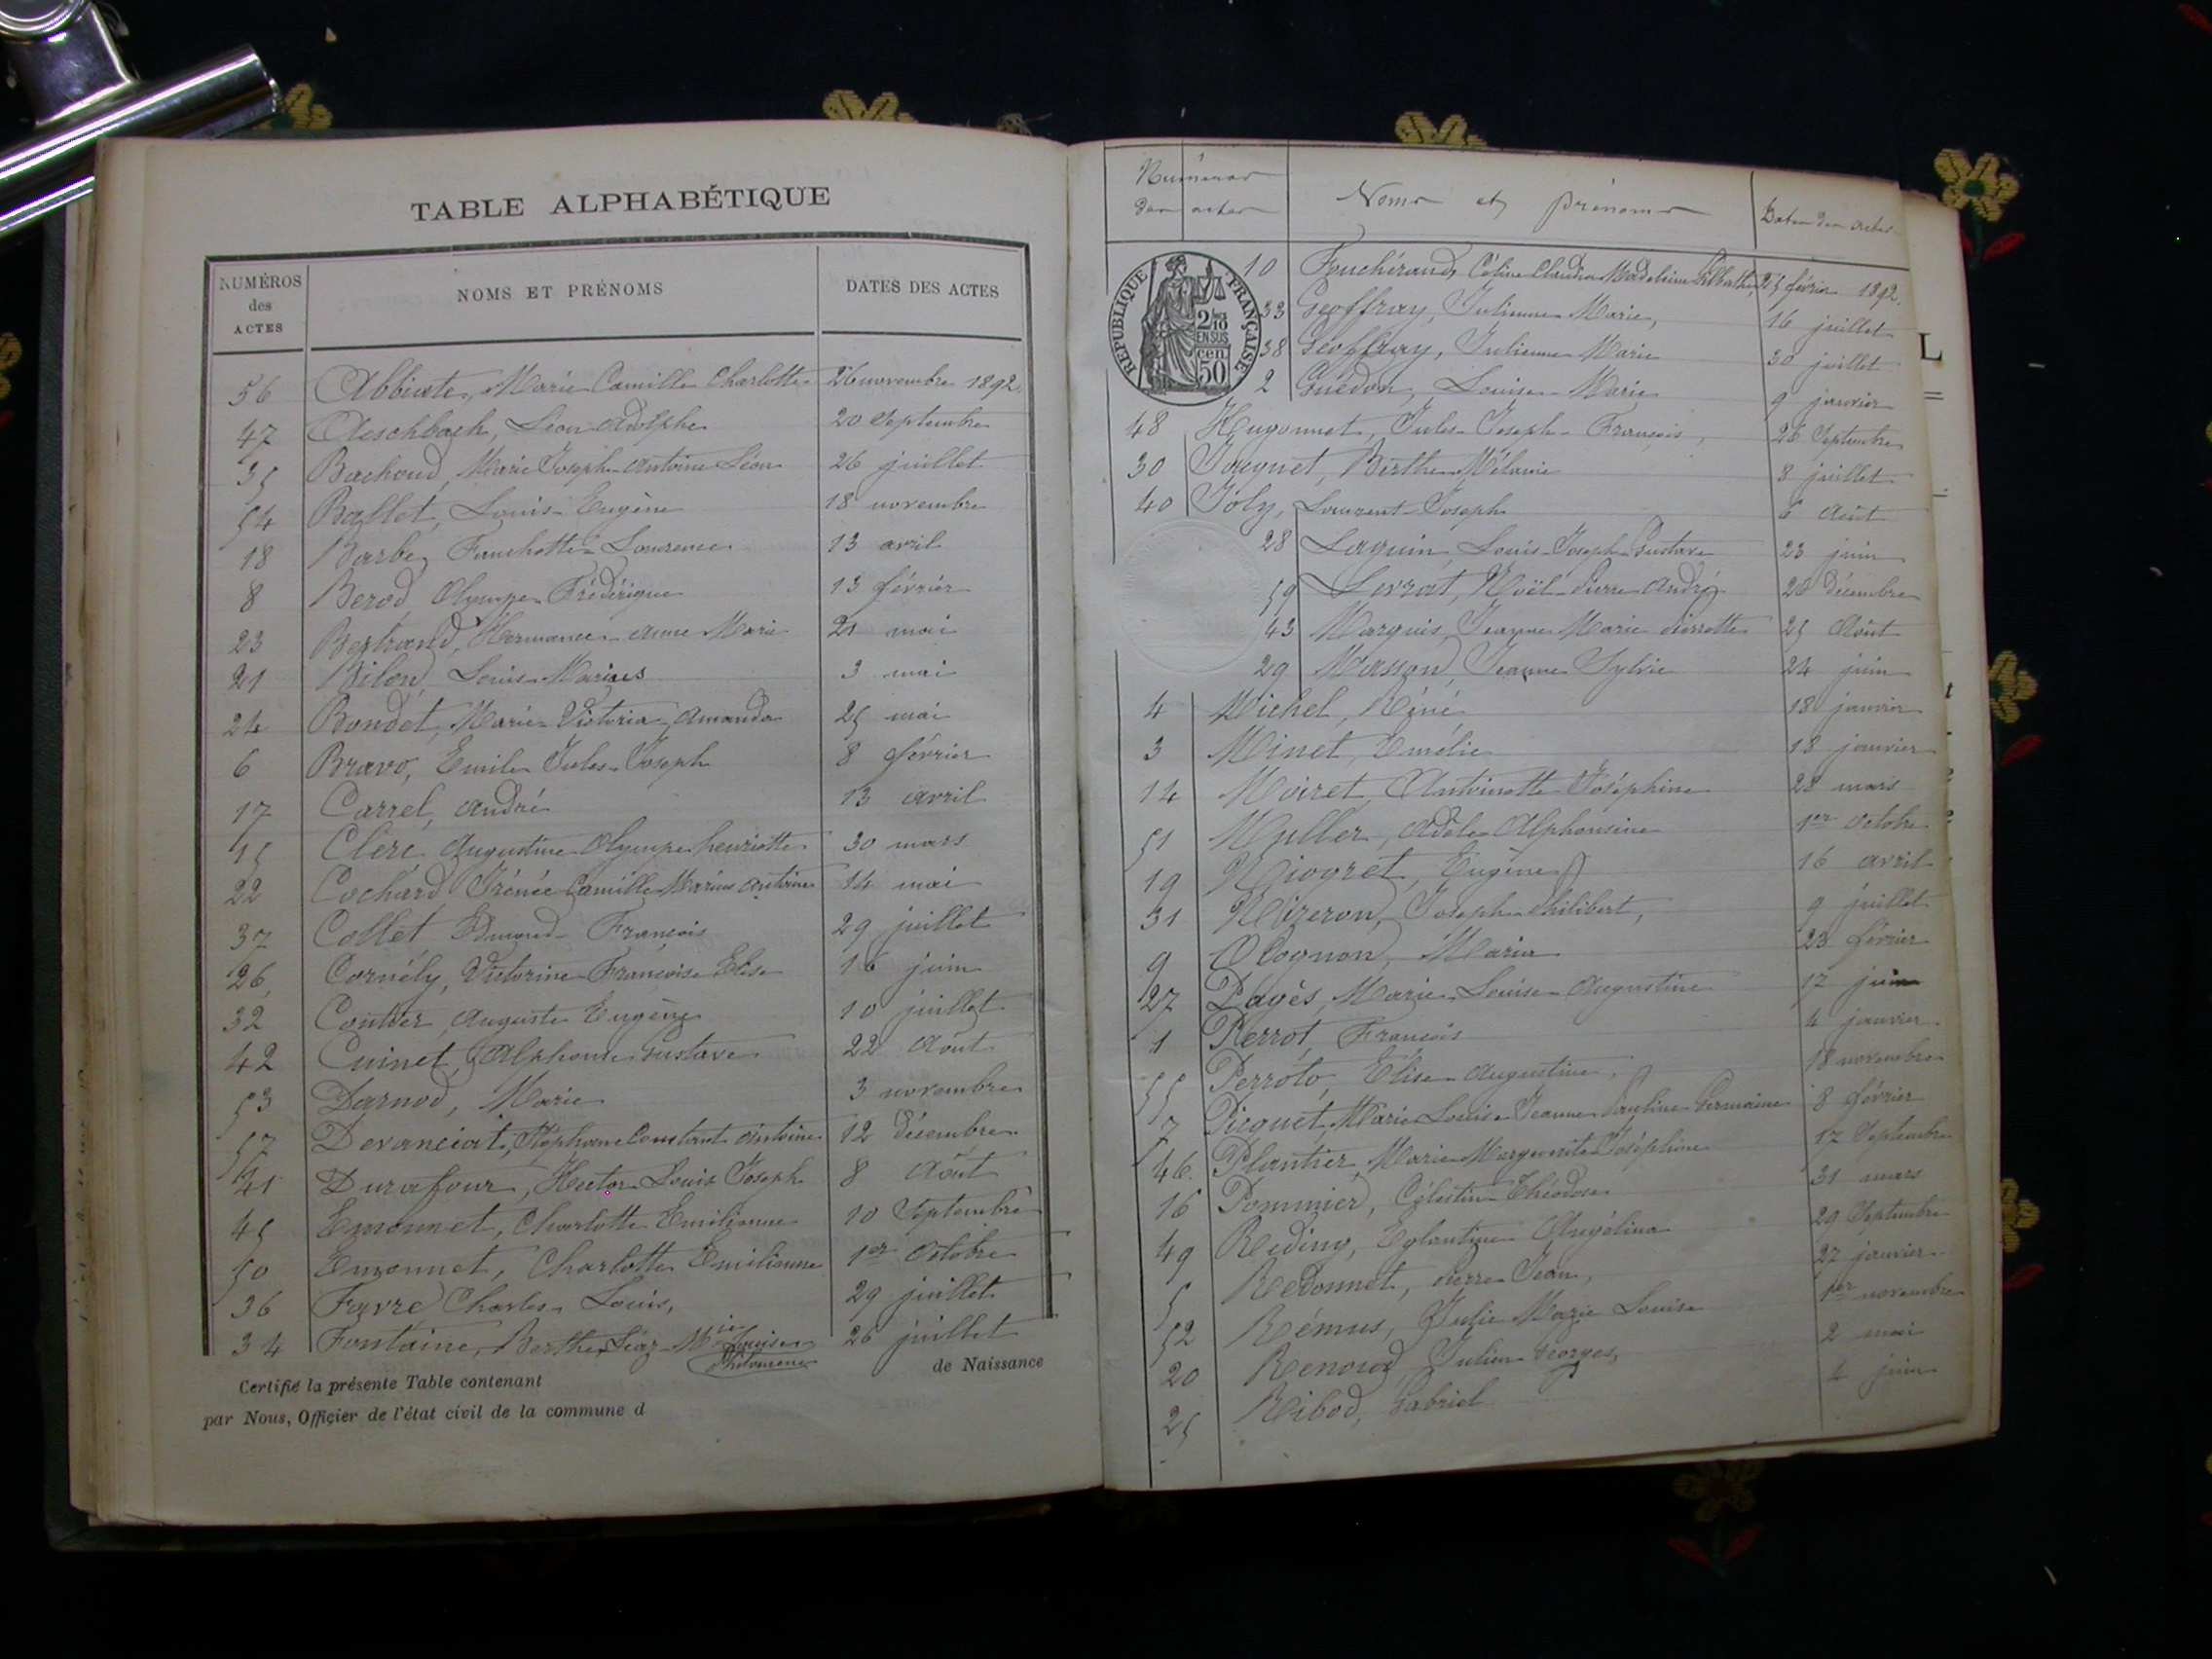 TABLE ALPHABÉTIQUE
NUMÉROS des ACTES NOMS ET PRÉNOMS DATES DES ACTES
56 Abbiate, Marie Camille Charlotte 26 novembre 1892.
47 Aeschbach, Léon Adolphe 20 Septembre
35 Bachoud, Marie Joseph Antoine Léon 26 juillet
54 Ballet, Louis Eugène 18 novembre
18 Barbe, Fanchette Laurence 13 avril
8 Berod, Olympe Frédérique 13 février
23 Bertrand, Hermance Anne Marie 21 mai
21 Bilon, Louis Marius 3 mai
24 Bondet, Marie Victoria Amanda 25 mai
6 Bravo, Emile Jules Joseph 8 février
17 Carrel, André 13 avril
15 Clerc Augustine Olympe henriette 30 mars
22 Cochard Irénée Camille Marius Antoine 14 mai
37 Collet Edmond François 29 juillet
26 Cornély, Victorine Françoise Elise 16 juin
32 Coutier Auguste Eugène 10 juillet
42 Cuinet, Alphonse Gustave 22 Août
53 Darnod, Marie 3 novembre
57 Devanciat, Stéphane Constant Antoine 12 décembre
41 Durafour, Hector Louis Joseph 8 Août
45 Emonnet, Charlotte Emilienne 10 Septembre
50 Emonnet, Charlotte Emilienne 1er Octobre
36 Favre Charles Louis, 29 juillet
34 Fontaine, Berthe Mie Louise Philomène 26 juillet
Certifié la présente Table contenant de Naissance
par Nous, Officier de l'état civil de la commune d
Numéros des actes Noms et prénoms Dates des actes
RÉPUBLIQUE FRANÇAISE
2/10 EN SUS
cen 50
10 Fouchérand, Céline Claudia Madeleine 25 février 1892.
33 Geoffray, Julienne Marie, 16 juillet
38 Geoffray, Julienne Marie 30 juillet
2 Guédon, Louise Marie 9 janvier
48 Hugonnet, Jules Joseph François, 26 Septembre
30 Jouquet, Berthe Mélanie 8 juillet
40 Joly, Laurent Joseph 6 Août
28 Laguin Louis Joseph Gustave 23 juin
59 Levrat, Noël Pierre André 26 décembre
43 Marquis, Jeanne Marie Pierrette 25 Août
29 Masson, Jeanne Sylvie 24 juin
4 Michel, Réné 18 janvier
3 Minet, Emélie 18 janvier
14 Moiret, Antoinette Joséphine 28 mars
51 Muller, Adèle Alphonsine 1er Octobre
19 Niogret, Eugène 16 avril
31 Nizeron, Joseph Philibert, 9 juillet
9 Olognon, Maria 23 février
27 Pagès, Marie Louise Augustine 17 juin
1 Perrot, François 4 janvier
55 Perroto, Elise Augustine, 18 novembre
7 Picquet, Marie Louise Jeanne Pauline Germaine 8 février
46. Plantier, Marie Marguerite Joséphine 17 Septembre
16 Pommier, Célestin Théodore 31 mars
49 Reding, Eglantine Angélina 29 Septembre
5 Redonnet, Pierre Jean, 27 janvier
52 Rémus, Julie Marie Louise 1er novembre
20 Renoud Julien Georges, 2 mai
25 Ribod, Gabriel 4 juin